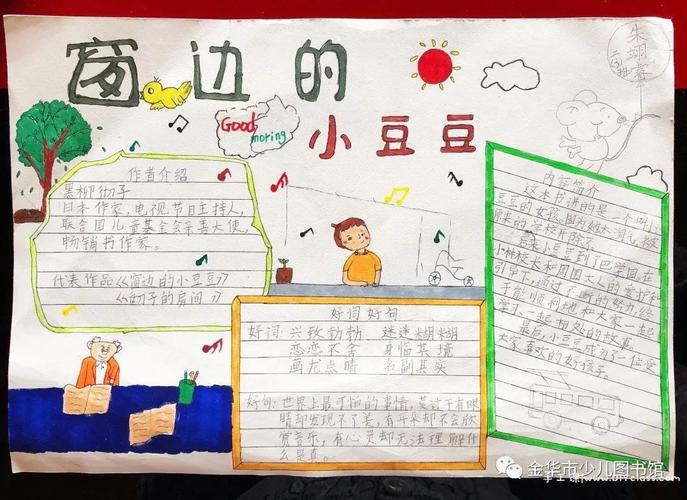 窗边的
小豆豆
Good
moring
朱翊睿
二(3)班
作者介绍
黑柳彻子
日本作家,电视节目主持人,
联合国儿童基金会亲善大使,
畅销书作家。
代表作品《窗边的小豆豆》
《彻子的房间》
好词好句
好词:兴致勃勃、迷迷糊糊
恋恋不舍 身临其境
画龙点睛 名副其实
好句:世界上最可怕的事情,莫过于有眼
睛却发现不了美,有耳朵却不会欣
赏音乐,有心灵却无法理解什
么是真。
内容简介
这本书讲的是一个叫小
豆豆的女孩,因为太淘气,被
原来的学校开除了。
后来小豆豆到了巴学园,在
小林校长和周围大人的爱护和
引导下,通过了不断的努力,终
于能顺利地和大家一起
学习一起相处的故事。
最后,小豆豆成为了一位受
大家喜欢的好孩子。
金华市少儿图书馆
www.diyclass.com